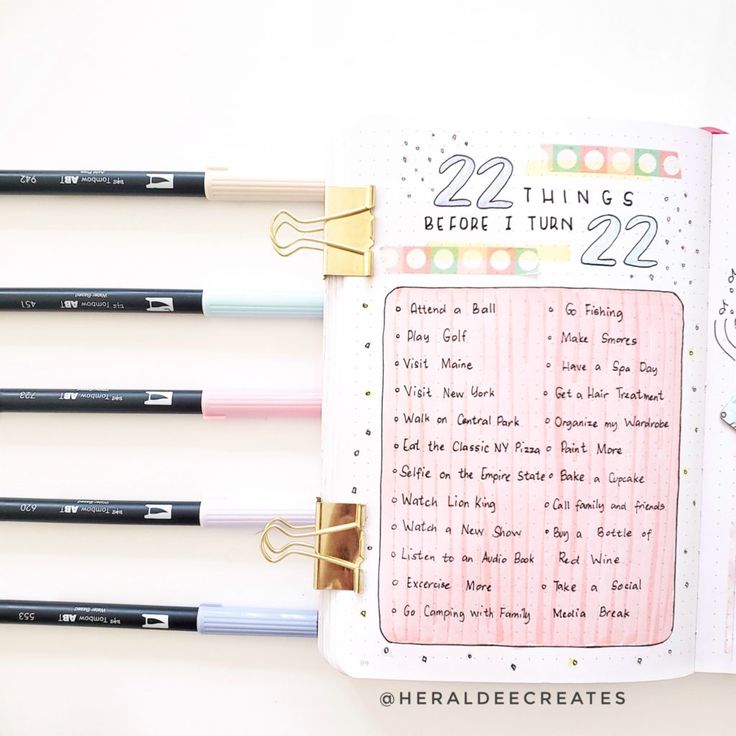 22 THINGS
BEFORE I TURN 22
Attend a Ball
Play Golf
Visit Maine
Visit New York
Walk on Central Park
Eat the Classic NY Pizza
Selfie on the Empire State
Watch Lion King
Watch a New Show
Listen to an Audio Book
Excercise More
Go Camping with Family
Go Fishing
Make Smores
Have a Spa Day
Get a Hair Treatment
Organize my Wardrobe
Paint More
Bake a Cupcake
Call family and friends
Buy a Bottle of
Red Wine
Take a Social
Media Break
@HERALDEECREATES
942 Tombow ABT
451 Tombow ABT
723 Tombow ABT
620 Tombow ABT
553 Tombow ABT